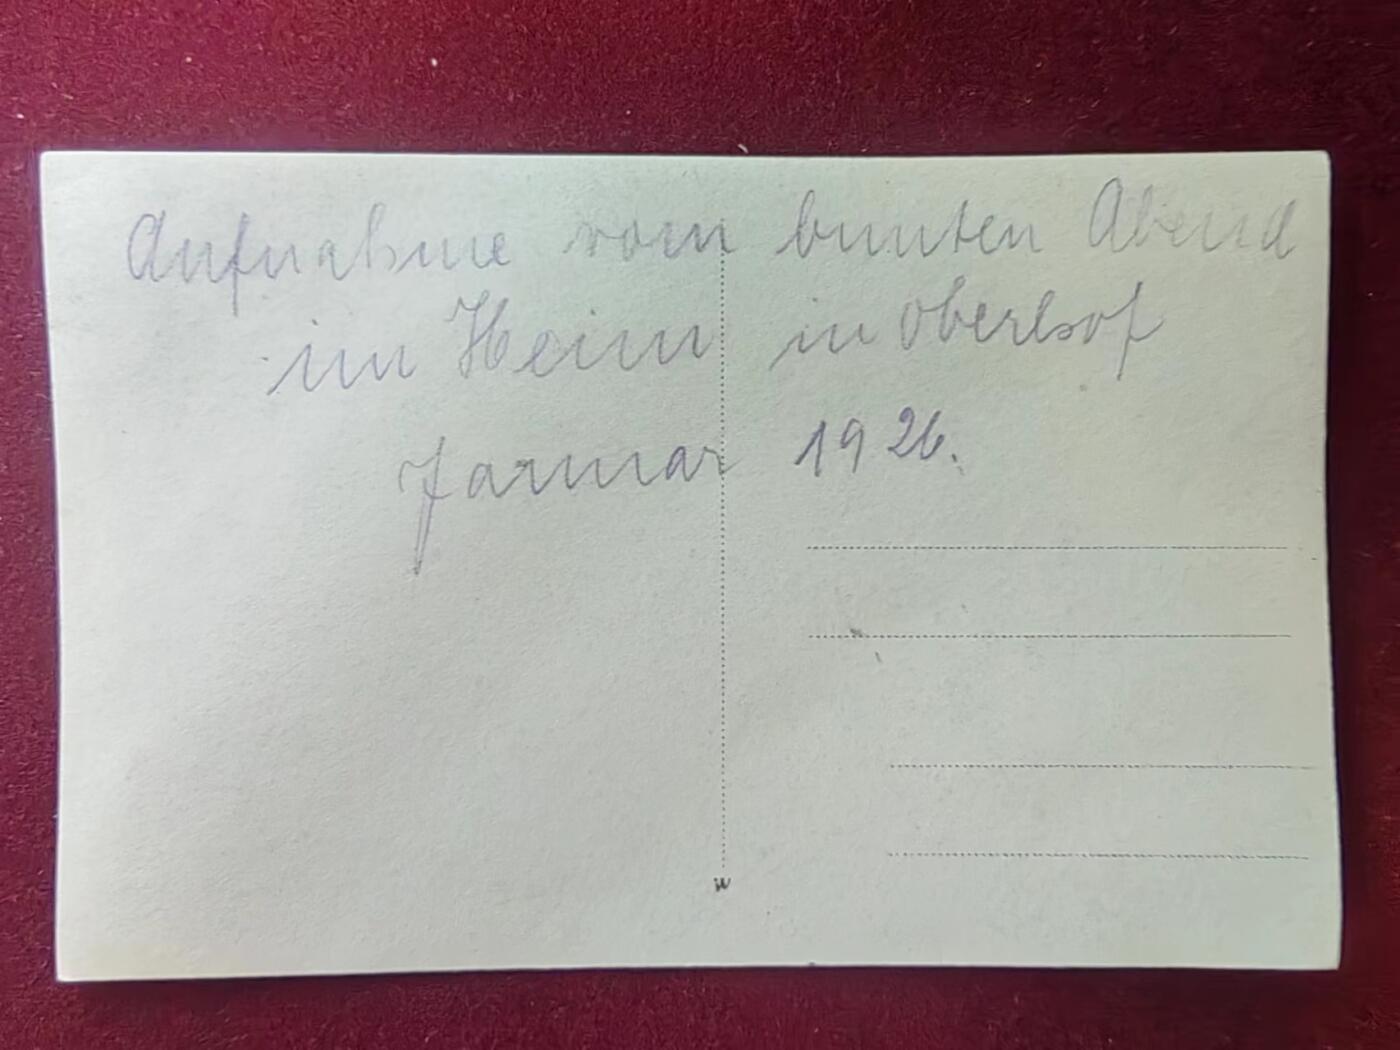 Aufnahme vom bunten Abend
im Heim in Oberhof
Januar 1926.
W